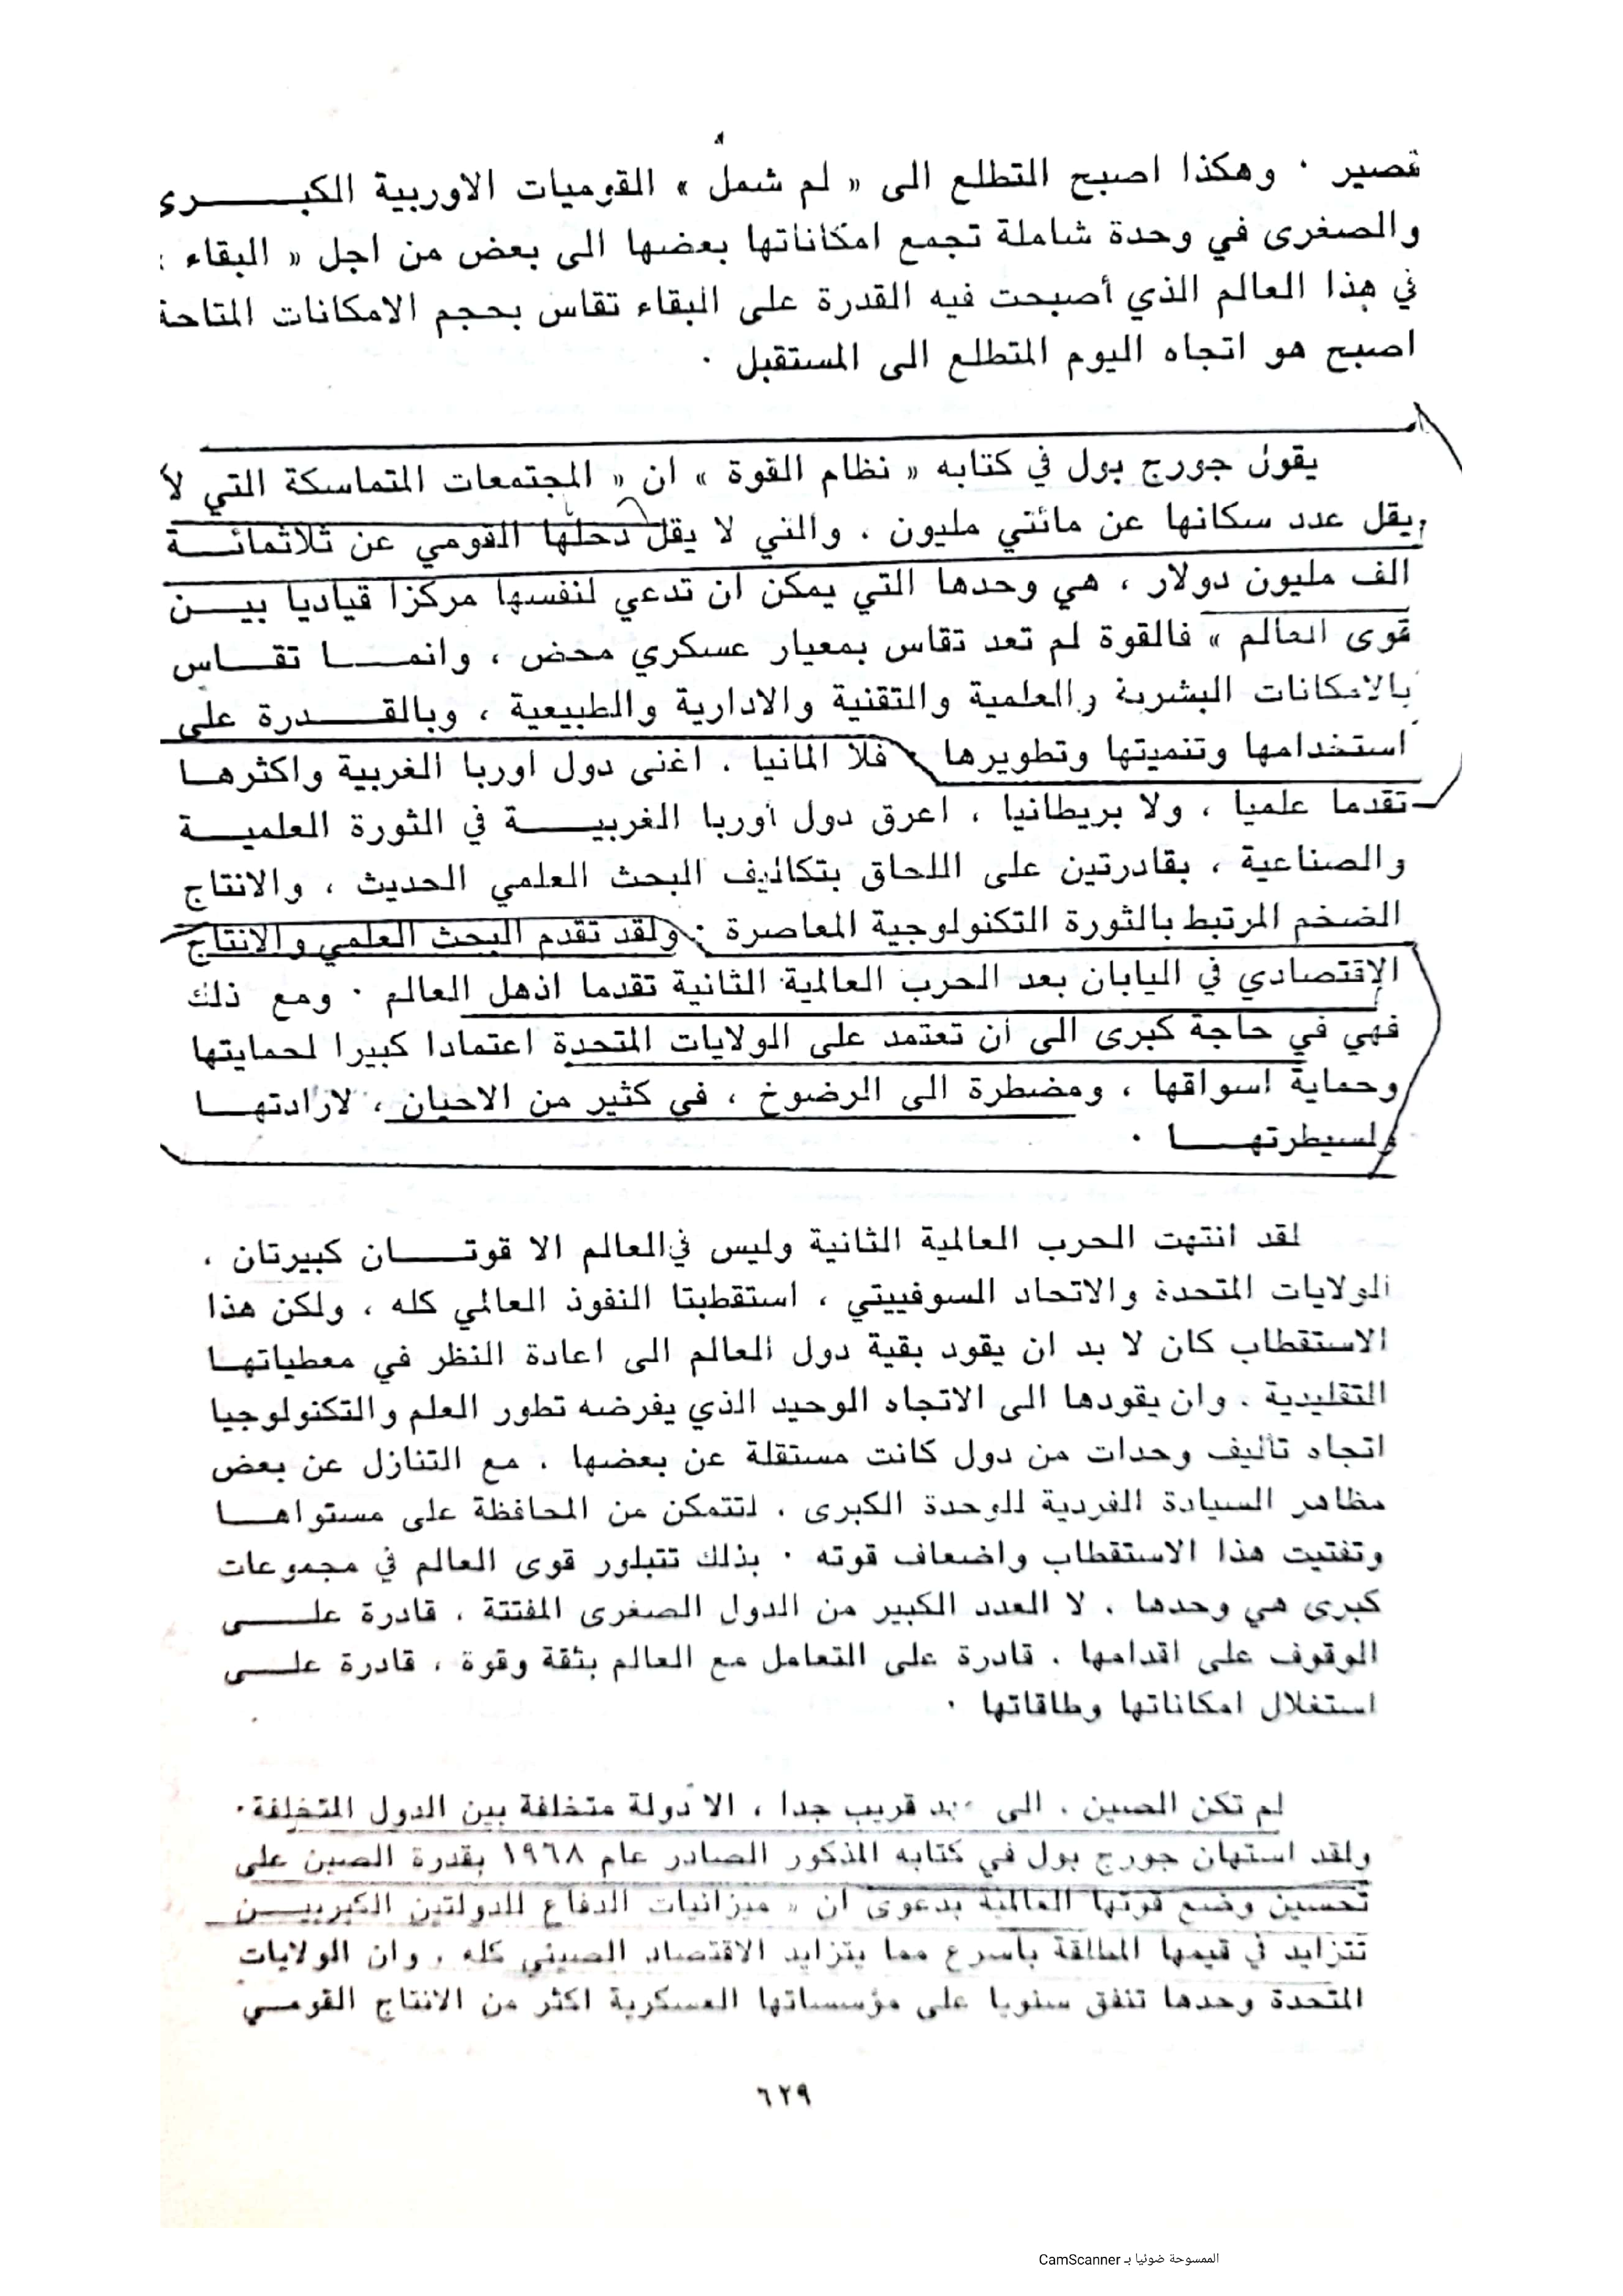 قصير . وهكذا اصبح التطلع الى « لم شمل » القوميات الاوربية الكبرى
والصغرى في وحدة شاملة تجمع امكاناتها بعضها الى بعض من اجل « البقاء »
في هذا العالم الذي أصبحت فيه القدرة على البقاء تقاس بحجم الامكانات المتاحة
اصبح هو اتجاه اليوم المتطلع الى المستقبل .
يقول جورج بول في كتابه « نظام القوة » ان « المجتمعات المتماسكة التي لا
يقل عدد سكانها عن مائتي مليون ، والتي لا يقل دخلها القومي عن ثلاثمائة
الف مليون دولار ، هي وحدها التي يمكن ان تدعي لنفسها مركزا قياديا بين
قوى العالم » فالقوة لم تعد تقاس بمعيار عسكري محض ، وانما تقاس
بالامكانات البشرية والعلمية والتقنية والادارية والطبيعية ، وبالقدرة على
استخدامها وتنميتها وتطويرها . فلا المانيا ، اغنى دول اوربا الغربية واكثرها
تقدما علميا ، ولا بريطانيا ، اعرق دول أوربا الغربية في الثورة العلمية
والصناعية ، بقادرتين على اللحاق بتكاليف البحث العلمي الحديث ، والانتاج
الضخم المرتبط بالثورة التكنولوجية المعاصرة . ولقد تقدم البحث العلمي والانتاج
الإقتصادي في اليابان بعد الحرب العالمية الثانية تقدما اذهل العالم . ومع ذلك
فهي في حاجة كبرى الى أن تعتمد على الولايات المتحدة اعتمادا كبيرا لحمايتها
وحماية اسواقها ، ومضطرة الى الرضوخ ، في كثير من الاحيان ، لارادتها
ولسيطرتها .
لقد انتهت الحرب العالمية الثانية وليس في العالم الا قوتان كبيرتان ،
الولايات المتحدة والاتحاد السوفييتي ، استقطبتا النفوذ العالمي كله ، ولكن هذا
الاستقطاب كان لا بد ان يقود بقية دول العالم الى اعادة النظر في معطياتها
التقليدية . وان يقودها الى الاتجاه الوحيد الذي يفرضه تطور العلم والتكنولوجيا
اتجاه تأليف وحدات من دول كانت مستقلة عن بعضها ، مع التنازل عن بعض
مظاهر السيادة الفردية للوحدة الكبرى ، لتتمكن من المحافظة على مستواها
وتفتيت هذا الاستقطاب واضعاف قوته . بذلك تتبلور قوى العالم في مجموعات
كبرى هي وحدها ، لا العدد الكبير من الدول الصغرى المفتتة ، قادرة على
الوقوف على اقدامها ، قادرة على التعامل مع العالم بثقة وقوة ، قادرة على
استغلال امكاناتها وطاقاتها .
لم تكن الصين ، الى قريب جدا ، الا دولة متخلفة بين الدول المتخلفة .
ولقد استهان جورج بول في كتابه المذكور الصادر عام ١٩٦٨ بقدرة الصين على
تحسين وضع قوتها العالمية بدعوى ان « ميزانيات الدفاع للدولتين الكبريين
تتزايد في قيمها المطلقة بأسرع مما يتزايد الاقتصاد الصيني كله ، وان الولايات
المتحدة وحدها تنفق سنويا على مؤسساتها العسكرية اكثر من الانتاج القومي
٦٢٩
الممسوحة ضوئيا بـ CamScanner